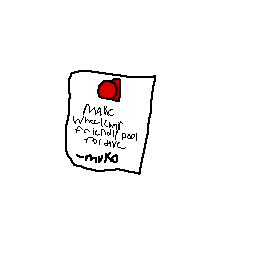 MAKE
wheelchair
friendly pool
for dive
-muko